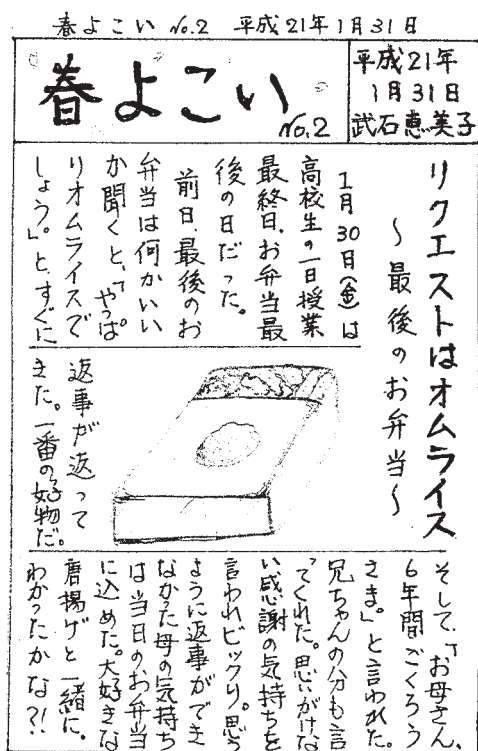 春よこい No.2 平成21年1月31日
春よこい
No.2
平成21年
1月31日
武石恵美子
リクエストはオムライス
～最後のお弁当～
1月30日(金)は
高校生の一日授業
最終日、お弁当最
後の日だった。
前日、最後のお
弁当は何かいい
か聞くと、「やっぱ
りオムライスで
しょう。」と、すぐに
返事が返って
きた。一番の好物だ。
そして、「お母さん、
6年間ごくろう
さま。」と言われた。
兄ちゃんの分も言
ってくれた。思いがけな
い感謝の気持ちを
言われビックリ。思う
ように返事ができ
なかった母の気持ち
は当日のお弁当
に込めた。大好きな
唐揚げと一緒に。
わかったかな?!